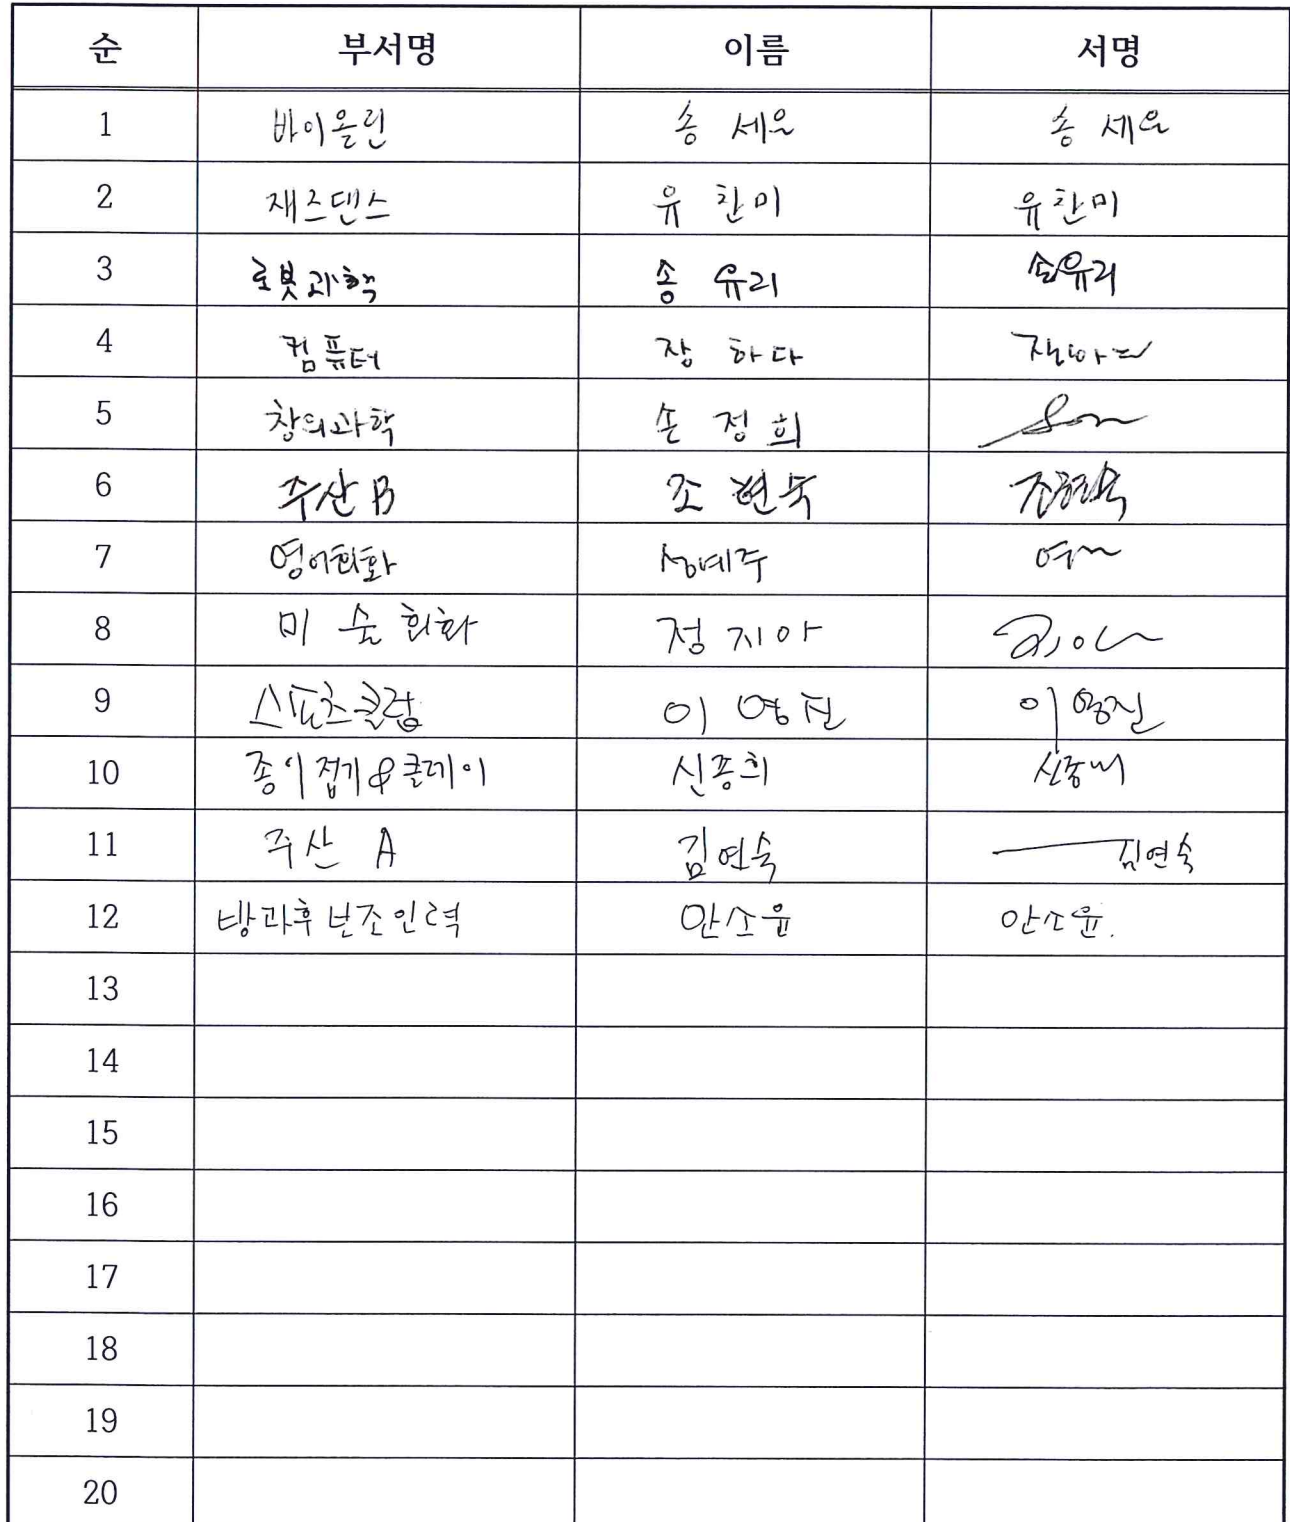 순 부서명 이름 서명
1 바이올린 송 세온 송 세온
2 재즈댄스 유 찬미 유찬미
3 로봇과학 송 유리 송유리
4 컴퓨터 장 하다
5 창의과학 손 정희 Son
6 주산 B 조 현숙 조현숙
7 영어회화 성예주
8 미술회화 정지아
9 스포츠클럽 이영진 이영진
10 종이접기&클레이 신종희
11 주산 A 김연숙 김연숙
12 방과후보조인력 안소윤 안소윤.
13
14
15
16
17
18
19
20